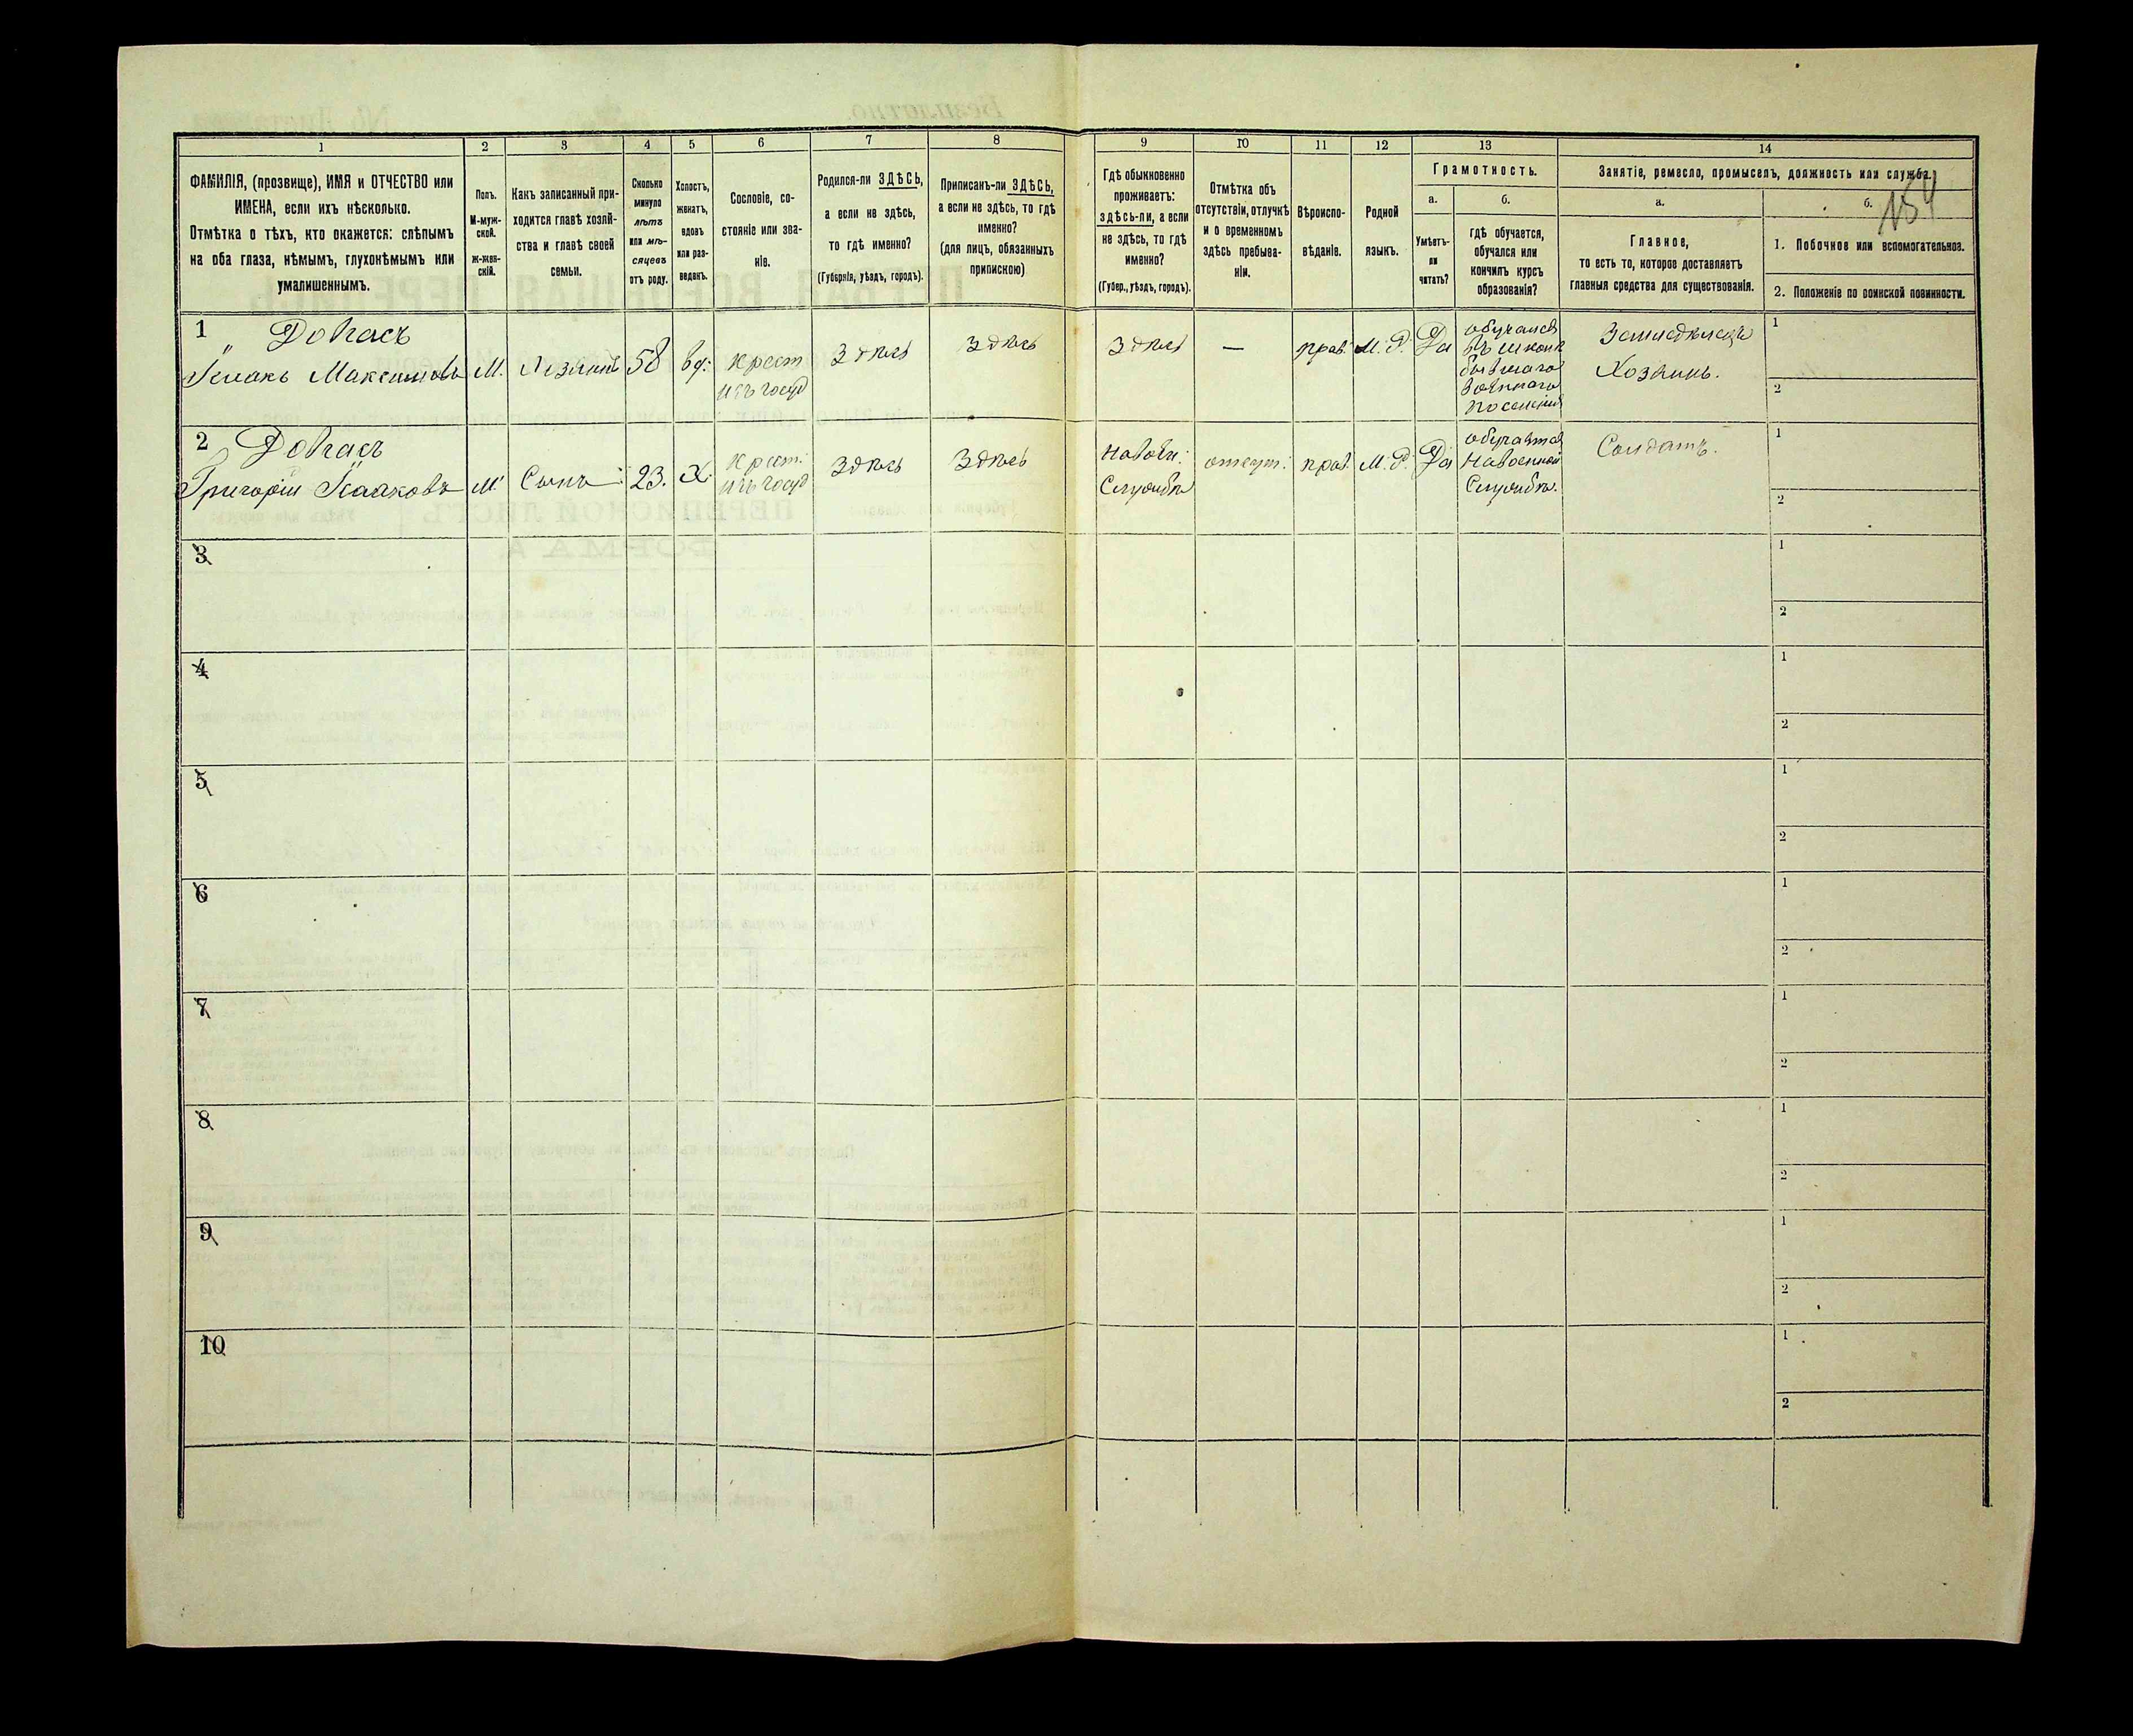 1 2 3 4 5 6 7 8 9 10 11 12 13 14
ФАМИЛІЯ, (прозвище), ИМЯ и ОТЧЕСТВО или
ИМЕНА, если ихъ нѣсколько.
Отмѣтка о тѣхъ, кто окажется: слѣпымъ
на оба глаза, нѣмымъ, глухонѣмымъ или
умалишеннымъ.
Полъ.
М-муж-
ской.
Ж-жен-
скій.
Какъ записанный при-
ходится главѣ хозяй-
ства и главѣ своей
семьи.
Сколько
минуло
лѣтъ
или мѣ-
сяцевъ
отъ роду.
Холостъ,
женатъ,
вдовъ
или раз-
веденъ.
Сословіе, со-
стояніе или зва-
ніе.
Родился-ли ЗДѢСЬ,
а если не здѣсь,
то гдѣ именно?
(Губернія, уѣздъ, городъ).
Приписанъ-ли ЗДѢСЬ,
а если не здѣсь, то гдѣ
именно?
(для лицъ, обязанныхъ
припискою)
Гдѣ обыкновенно
проживаетъ:
здѣсь-ли, а если
не здѣсь, то гдѣ
именно?
(Губер., уѣздъ, городъ).
Отмѣтка объ
отсутствіи, отлучкѣ
и о временномъ
здѣсь пребыва-
ніи.
Вѣроиспо-
вѣданіе.
Родной
языкъ.
Грамотность.
а.
Умѣетъ-
ли
читать?
б.
гдѣ обучается,
обучался или
кончилъ курсъ
образованія?
Занятіе, ремесло, промыселъ, должность или служба.
а.
Главное,
то есть то, которое доставляетъ
главныя средства для существованія.
б.
154
1. Побочное или вспомогательное.
2. Положеніе по воинской повинности.
1
Исаакъ Максимовъ
М.
58
вд:
крест
изъ госуд
здѣсь
здѣсь
здѣсь
—
прав.
М. Р.
Да
обучался
въ школѣ
бывшаго
военнаго
поселенія
Земледѣлецъ
Хозяинъ.
1
2
2
Григорій Исааковъ
М
Сынъ
23.
Х.
крест.
изъ госуд
здѣсь
здѣсь
На воен:
Службѣ
отсут:
прав.
М. Р.
Да
обучался
На военной
Службѣ.
Солдатъ.
1
2
3
1
2
4
1
2
5
1
2
6
1
2
7
1
2
8
1
2
9
1
2
10
1
2